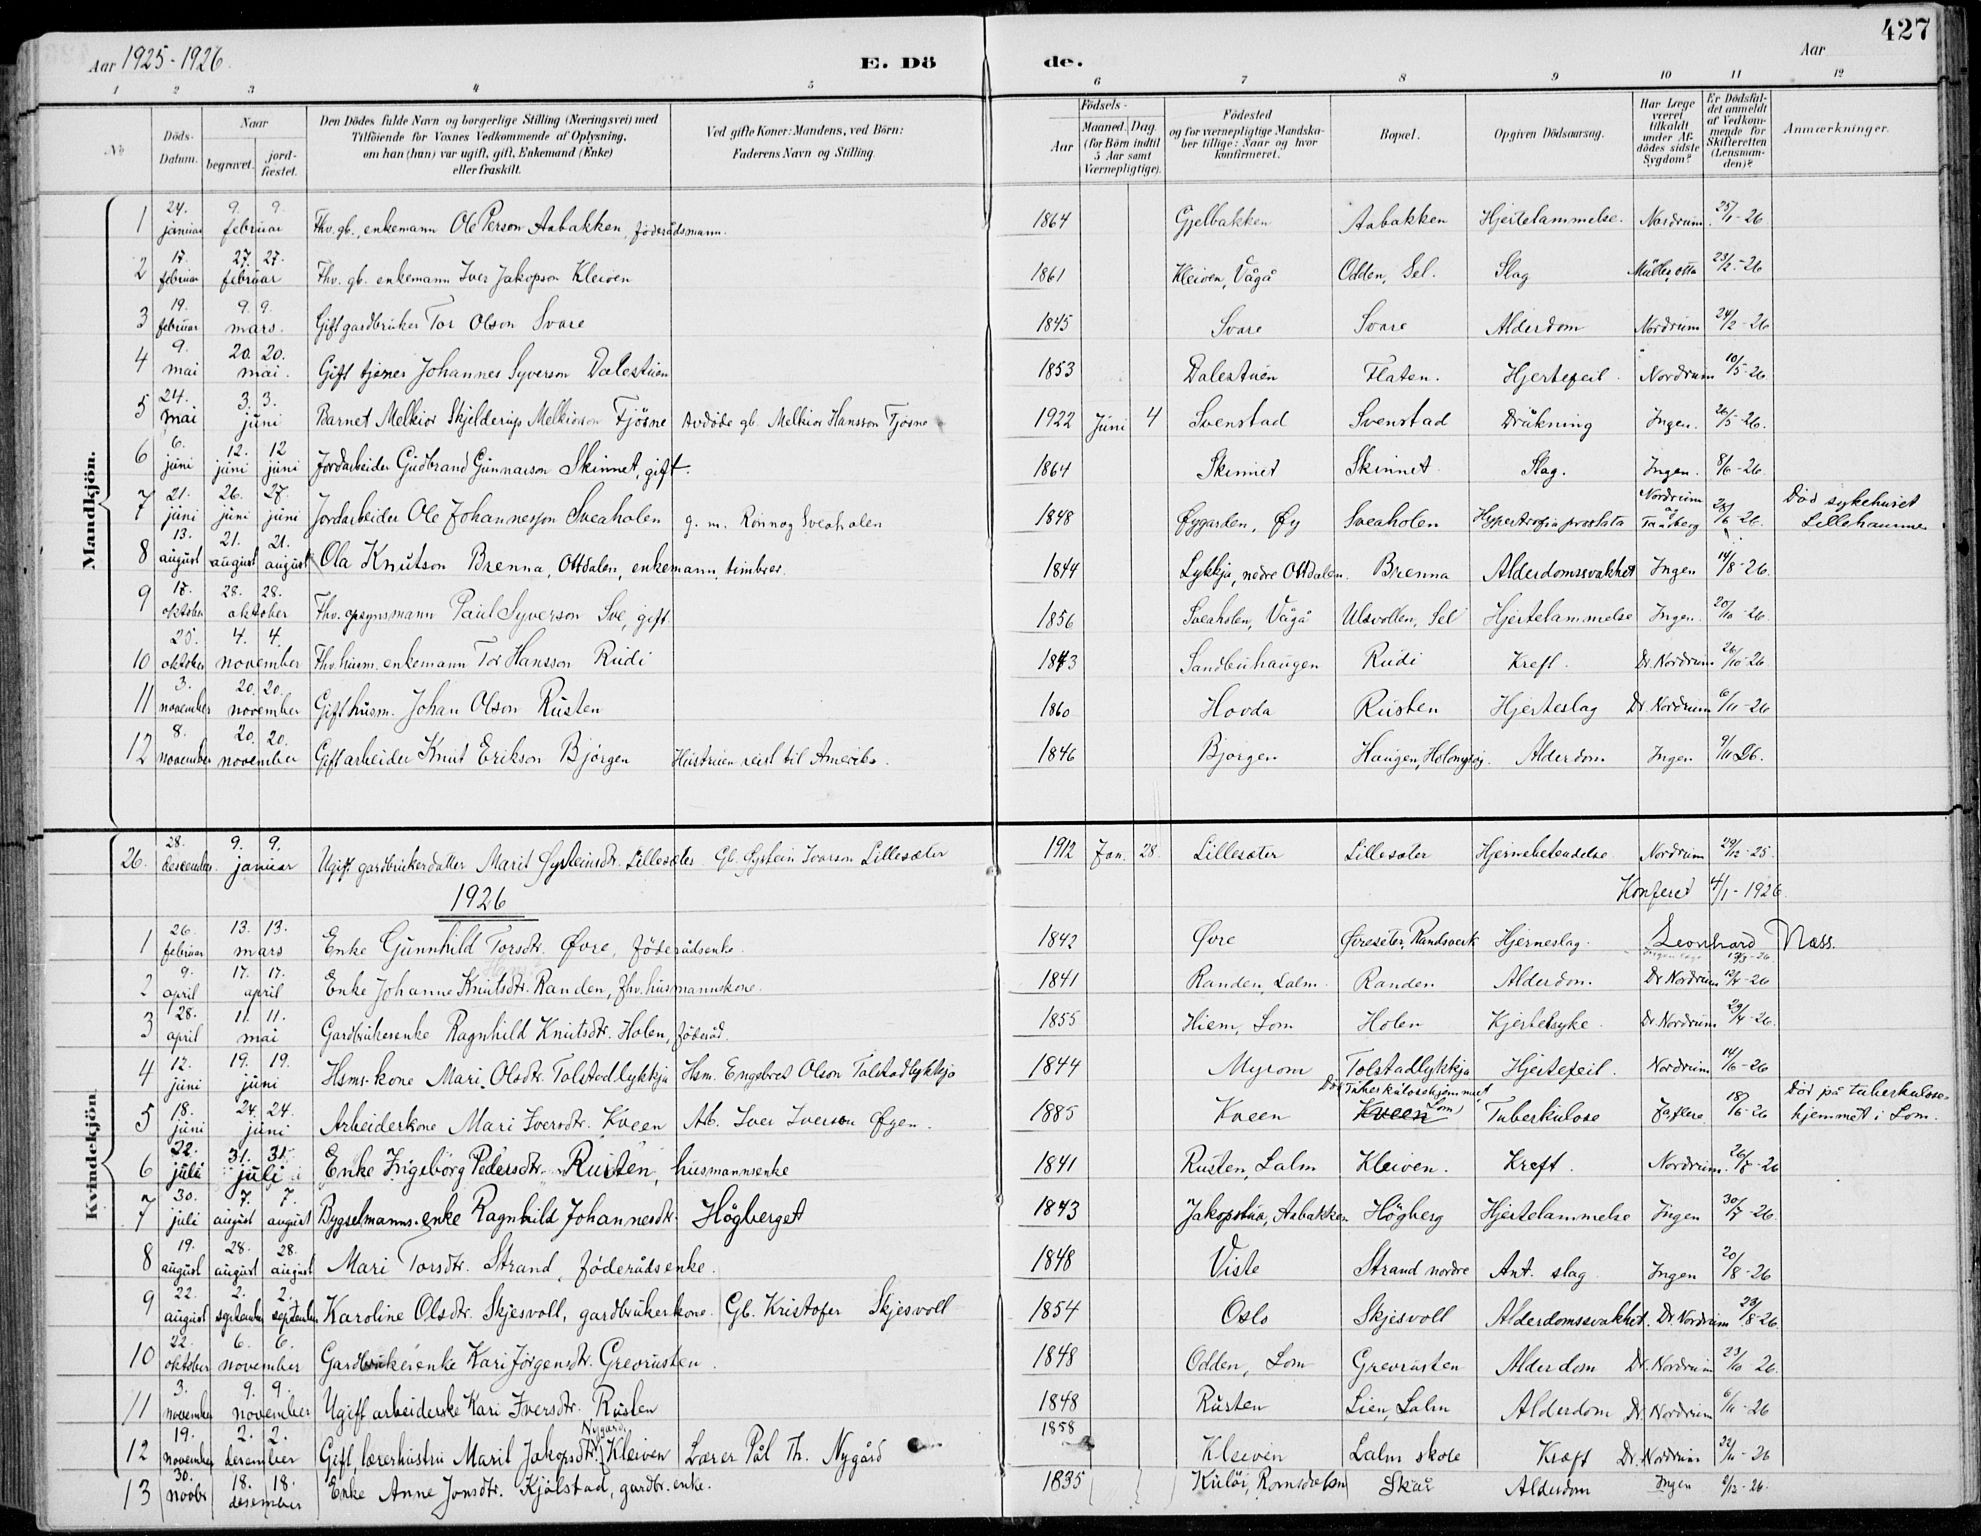 427
Aar 1925-1926.
E. Dö
de.
Aar
1 2 3 4 5 6 7 8 9 10 11 12
No
Döds-Datum.
Naar
begravet.
jord-fæstet.
Den Dödes fulde Navn og borgerlige Stilling (Næringsvei) med
Tilföiende for Voxnes Vedkommende af Oplysning,
om han (hun) var ugift, gift, Enkemand (Enke)
eller fraskilt.
Ved gifte Koner: Mandens, ved Börn:
Faderens Navn og Stilling.
Födsels-
Aar
Maaned. Dag.
(for Börn indtil
5 Aar samt
Værnepligtige).
Födested
og for værnepligtige Mandska-
ber tillige: Naar og hvor
konfirmeret.
Bopæl.
Opgiven Dödsaarsag.
Har Læge
været
tilkaldt
under Af-
dödes sidste
Sygdom?
Er Dödsfal-
det anmeldt
af Vedkom-
mende for
Skifteretten
(Lensman-
den)?
Anmærkninger.
Mandkjön.
1 24. januar 9. 9. februar Fhv. gb., enkemann Ole Person Aabakken, föderådsmann. 1864 Gjelbakken Aabakken Hjertelammelse. Nordrum 25/1-26.
2 17. februar 27. 27. februar Fhv. gb. enkemann Iver Jakopson Kleiven 1861 Kleiven, Vågå Odden, Sel. Slag Müller, Otta 23/2-26
3 19. februar 9. 9. mars. Gift gardbruker Tor Olson Svare 1845 Svare Svare Alderdom Nordrum 24/2-26
4 9. mai 20. 20. mai. Gift tjener Johannes Syverson Dalestuen 1853 Dalestuen Flaten. Hjertefeil. Nordrum 10/5-26
5 24. mai 3. 3. juni Barnet Melkior Skjelderup Melkiorson Tjösne Avdöde gb. Melkior Hansson Tjösne 1922 Juni 4 Svenstad Svenstad Drukning Ingen. 26/5-26.
6 6. juni 12. juni 12 juni Jordarbeider Gudbrand Gunnarson Skinnet, gift. 1864 Skinnet Skinnet Slag. Ingen. 8/6-26.
7 21. juni 26. juni 27. juni Jordarbeider Ole Johannesson Sveaholen g. m. Rönnog Sveaholen 1848 Øygarden, Øy Sveaholen Hypertrofia prostata Nordrum og Tandberg 28/6-26. Död sykehuset Lillehammer
8 13. august 21. august 21. august Ola Knutson Brenna, Ottdalen, enkemann, tömbrer. 1844 Lykkja, nedre Ottdalen. Brenna Alderdomssvakhet Ingen 14/8-26.
9 17. oktober 28. 28. oktober Fhv. opsynsmann Paul Syverson Sve, gift. 1856 Sveaholen, Vågå Ulsvollen, Sel Hjertelammelse Ingen. 20/10-26.
10 25. oktober 4. 4. november Fhv. husm. enkemann Tor Hansson Rudi 1843 Sandbuhaugen Rudi Kreft. Dr. Nordrum 26/10-26
11 3. november 20. 20. november Gift husm. Johan Olson Rusten 1860 Hovda Rusten Hjerteslag Dr. Nordrum 6/11-26
12 8. november 20. 20. november Gift arbeider Knut Erikson Bjørgen Hustruen reist til Amerika. 1846 Bjørgen Haugen, Alderdom Ingen 9/11-26.
Kvindekjön.
26. 28. desember. 9. 9. januar Ugift gardbrukerdatter Marit Øysteinsdtr. Lillesæter Gb. Øystein Ivarson Lillesæter 1912 Jan. 28. Lillesæter Lillesæter Hjernebetendelse Nordrum 29/12-25.
1926 Konferert 4/1-1926
1 26. februar 13. 13. mars Enke Gunnhild Torsdtr. Øvre, föderådsenke. 1842 Øvre Øvreseter, Randsverk Hjerneslag. Leonhard Næss.
2 9. april 17. 17. april Enke Johanne Knutsdtr. Randen, fhv. husmannskone. 1841 Randen, Lalm. Randen Alderdom. Dr Nordrum 12/4-26
3 28. april 11. 11. mai Gardbrukerenke Ragnhild Knutsdtr. Holen, föderåd. 1855 Hiem, Lom Holen Hjertesyke. Dr. Nordrum 29/4-26.
4 12. juni 19. 19. juni Hsms-kone Mari Olsdtr. Tolstadlykkja Hsm. Engebret Olson Tolstadlykkja 1844 Myrom Tolstadlykkja Hjertefeil. Nordrum 14/6-26
5 18. juni 24. 24. juni Arbeiderkone Mari Iversdtr. Kveen Ab. Iver Iverson Øygen. 1885 Kveen Kveen (Tuberkulosehjemmet Lom) Tuberkulose 18/6-26 Död på tuberkulose-hjemmet i Lom.
6 22. juli 31. 31. juli Enke Ingeborg Pedersdtr. Rusten, husmannsenke 1841 Rusten, Lalm Kleiven. Kreft. Nordrum. 26/7-26
7 30. juli 7. august 7. august Bygselmanns-enke Ragnhild Johannesdtr. Högberget 1843 Jakopstua, Aabakken Högberg Hjertelammelse Ingen 30/7-26.
8 19. august 28. august 28. august Mari Torsdtr. Strand, föderådsenke. 1848 Viste Strand nordre Ant. slag. Ingen 20/8-26
9 22. august 2. september 2. september Karoline Olsdtr. Skjesvoll, gardbrukerkone. Gb. Kristofer Skjesvoll 1854 Oslo Skjesvoll Alderdomssvakhet. Dr. Nordrum 23/8-26.
10 22. oktober 6. 6. november Gardbrukerenke Kari Jörgensdtr. Grevrusten. 1848 Odden, Lom Grevrusten Alderdom Dr. Nordrum 23/10-26.
11 3. november 9. 9. november Ugift arbeiderske Kari Iversdtr. Rusten 1848 Rusten Lien, Lalm Alderdom Dr. Nordrum 6/11-26
12 19. november 2. 2. desember Gift, lærerhustru Marit Jakopsdtr. Nygard, Kleiven Lærer Pål Th. Nygård 1858 Kleiven Lalm skole Kreft Dr. Nordrum 22/11-26
13 30. novbr 18. 18. desember Enke Anne Jonsdtr. Kjölstad, gardbr.enke. 1835 Romsdalen Skår Alderdom Ingen 2/12-26.